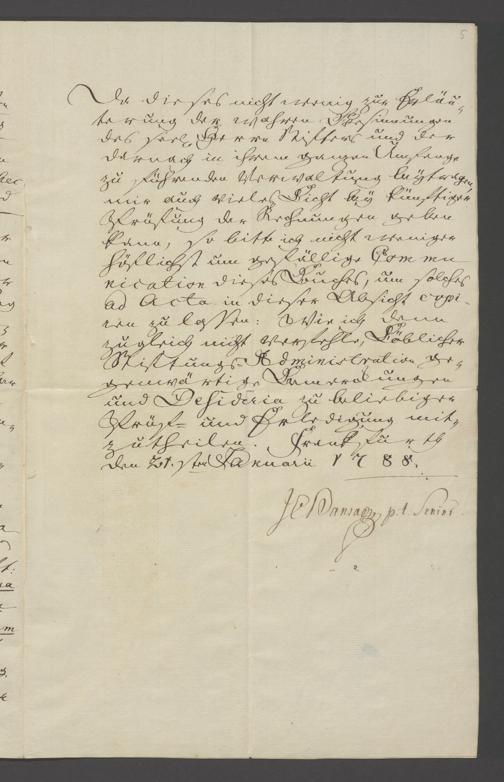 5
Da dieses nicht wenig zur Erläu-
terung der wahren Gesinnungen
des seel. Herrn Stifters und der
darnach in ihrem ganzen Umfange
zu führenden Verwaltung beytragen,
mir auch vieles Licht bey künftiger
Prüfung der Rechnungen geben
kann, so bitte ich nicht weniger
höflichst um gefällige Commu-
nication dieses Buches, um solches
ad Acta in dieser Absicht copi-
ren zu lassen: Wie ich denn
zugleich nicht verfehle, Löblicher
Stiftungs-Administration ge-
genwärtige Bemerckungen
und Desideria zu beliebiger
Prüf- und Erledigung mit-
zutheilen. Franckfurth
den 21.sten Januarii 1788.
p. t. Senior